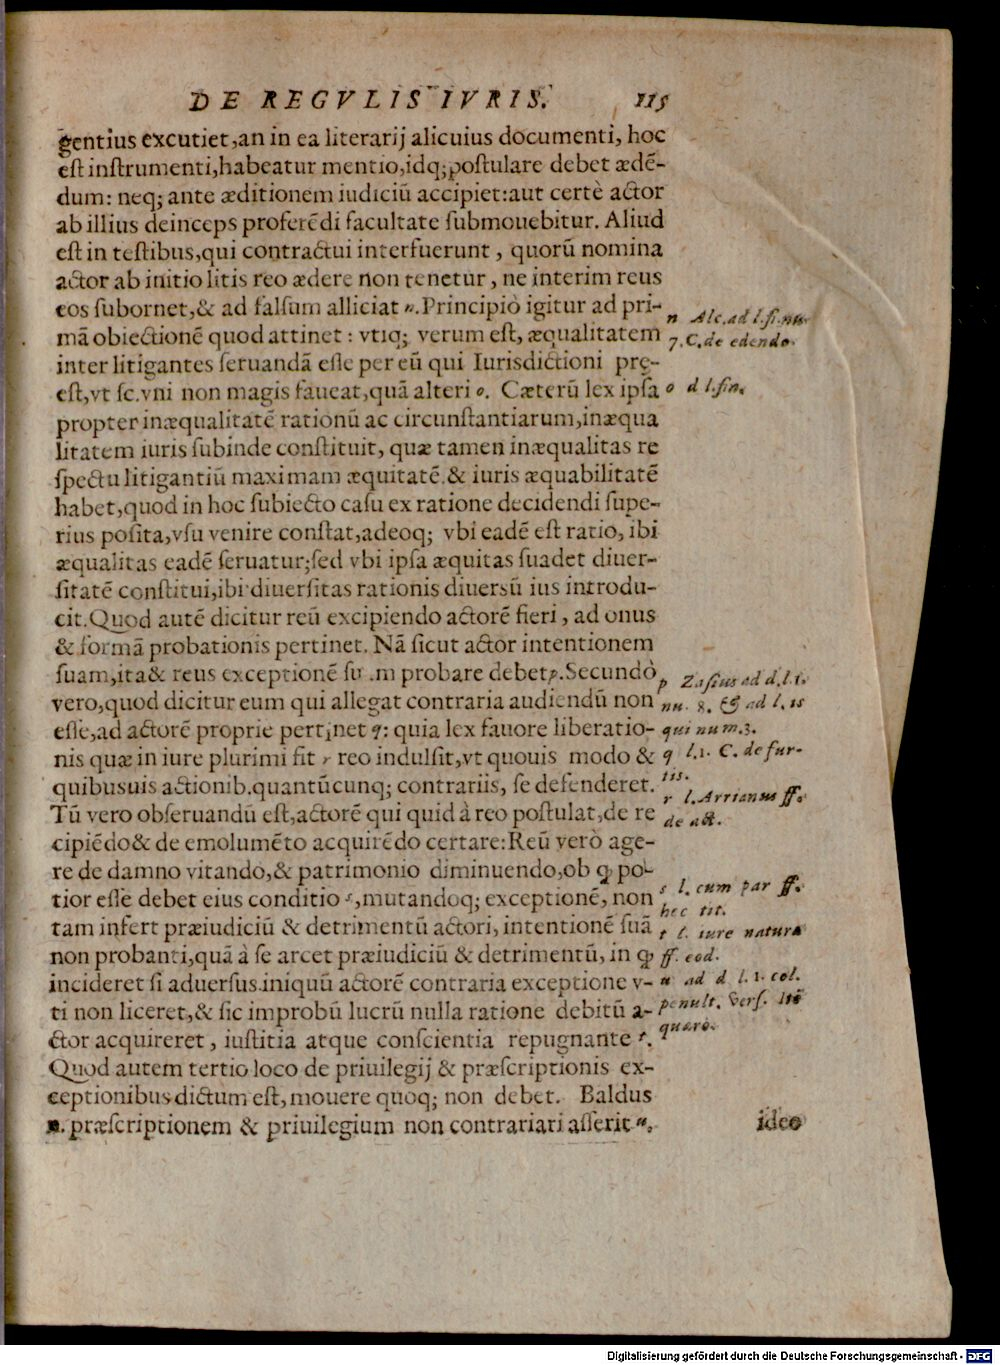 DE REGVLIS IVRIS. 115
gentius excutiet,an in ea literarij alicuius documenti, hoc
eſt inſtrumenti,habeatur mentio,idq;poſtulare debet ædē-
dum: neq; ante æditionem iudiciū accipiet:aut certè actor
ab illius deinceps proferēdi facultate ſubmouebitur. Aliud
eſt in teſtibus,qui contractui interfuerunt, quorū nomina
actor ab initio litis reo ædere non tenetur, ne interim reus
eos ſubornet,& ad falſum alliciat n.Principiò igitur ad pri-
mā obiectionē quod attinet: vtiq; verum eſt, æqualitatem
inter litigantes ſeruandā eſſe per eū qui Iurisdictioni prę-
eſt,vt ſc.vni non magis faueat,quā alteri o. Cæterū lex ipſa
propter inæqualitatē rationū ac circunſtantiarum,inæqua
litatem iuris ſubinde conſtituit, quæ tamen inæqualitas re
ſpectu litigantiū maximam æquitatē.& iuris æquabilitatē
habet,quod in hoc ſubiecto caſu ex ratione decidendi ſupe-
rius poſita,vſu venire conſtat,adeoq; vbi eadē eſt ratio, ibi
æqualitas eadē ſeruatur;ſed vbi ipſa æquitas ſuadet diuer-
ſitatē conſtitui,ibi diuerſitas rationis diuersū ius introdu-
cit.Quod autē dicitur reū excipiendo actorē fieri, ad onus
& formā probationis pertinet. Nā ſicut actor intentionem
ſuam,ita& reus exceptionē ſu.m probare debet p.Secundò
vero,quod dicitur eum qui allegat contraria audiendū non
eſſe,ad actorē proprie pertinet q: quia lex fauore liberatio-
nis quæ in iure plurimi fit r reo indulſit,vt quouis modo &
quibusuis actionib.quantūcunq; contrariis, ſe defenderet.
Tū vero obſeruandū eſt,actorē qui quid à reo poſtulat,de re
cipiēdo& de emolumēto acquirēdo certare:Reū verò age-
re de damno vitando,& patrimonio diminuendo,ob ꝙ po-
tior eſſe debet eius conditio s,mutandoq; exceptionē, non
tam infert præiudiciū & detrimentū actori, intentionē ſuā
non probanti,quā à ſe arcet præiudiciū & detrimentū, in ꝙ
incideret ſi aduerſus.iniquū actorē contraria exceptione v-
ti non liceret,& ſic improbū lucrū nulla ratione debitū a-
ctor acquireret, iuſtitia atque conſcientia repugnante t.
Quod autem tertio loco de priuilegij & præſcriptionis ex-
ceptionibus dictum eſt, mouere quoq; non debet. Baldus
n. præſcriptionem & priuilegium non contrariari aſſerit u,
ideo
n Alc.ad l.fi.nu.
7.C.de edendo.
o d l.fin.
p Zaſius ad d.l.1.
nu. 8. & ad l. is
qui num.3.
q l.1. C. de fur-
tis.
r l.Arrianus ff.
de act.
s l. cum par ff.
hec tit.
t l. iure natura
ff. eod.
u ad d l.1. col.
penult. verſ. Itē
quæro.
Digitalisierung gefördert durch die Deutsche Forschungsgemeinschaft - DFG